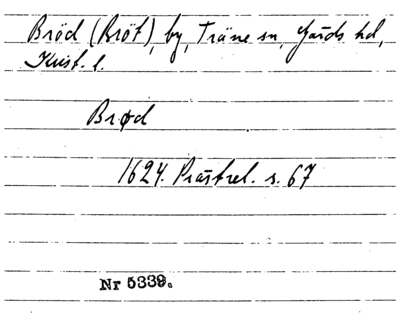 Bröd (Bröt), by, Träne sn, Gärds hd,
Krist. l.
Brød
1624. Prästrel. s. 67
Nr 5339.